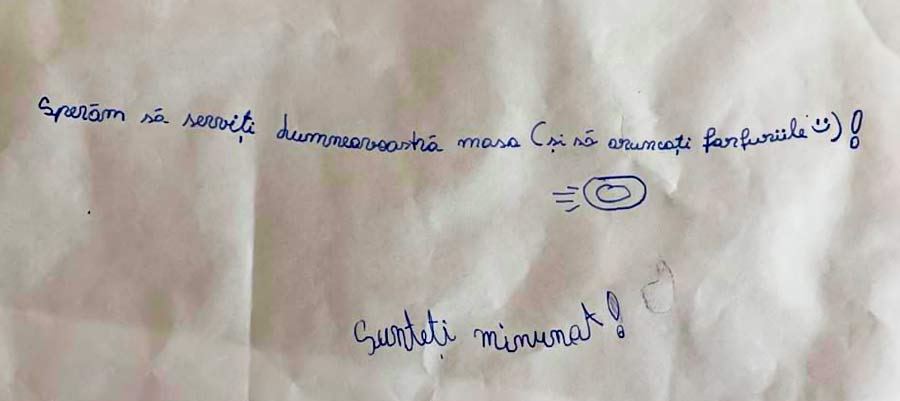 Sperăm să serviți dumneavoastră masa (și să aruncați farfuriile :))!
Sunteți minunat!